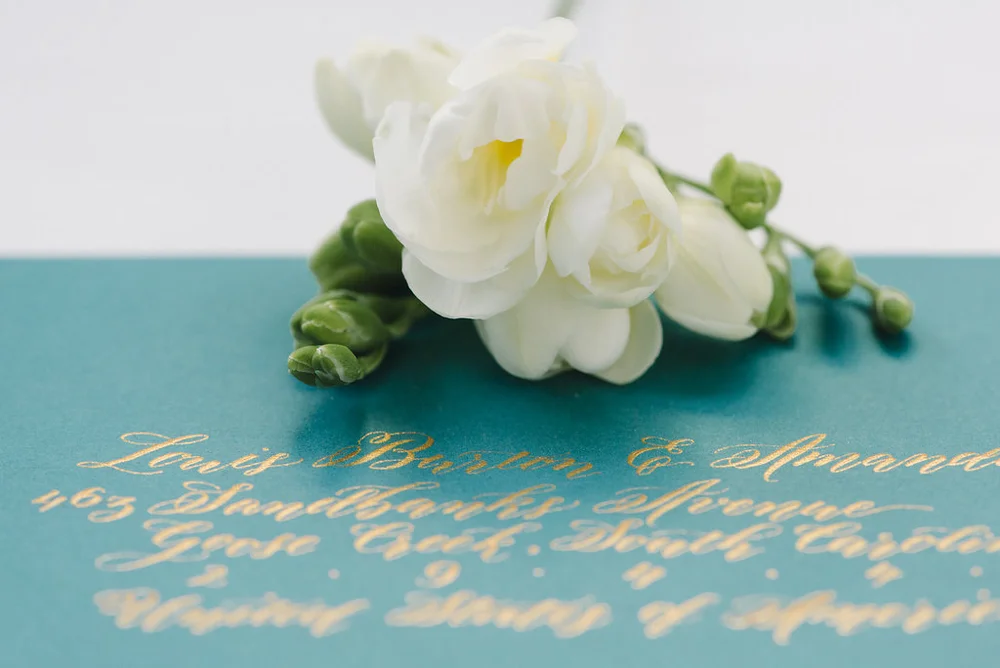 Louis Burton & Amanda
463 Sandbanks Avenue
Goose Creek . South Carolin
2 . 9 . 4 . 4 .
United States of Ameri